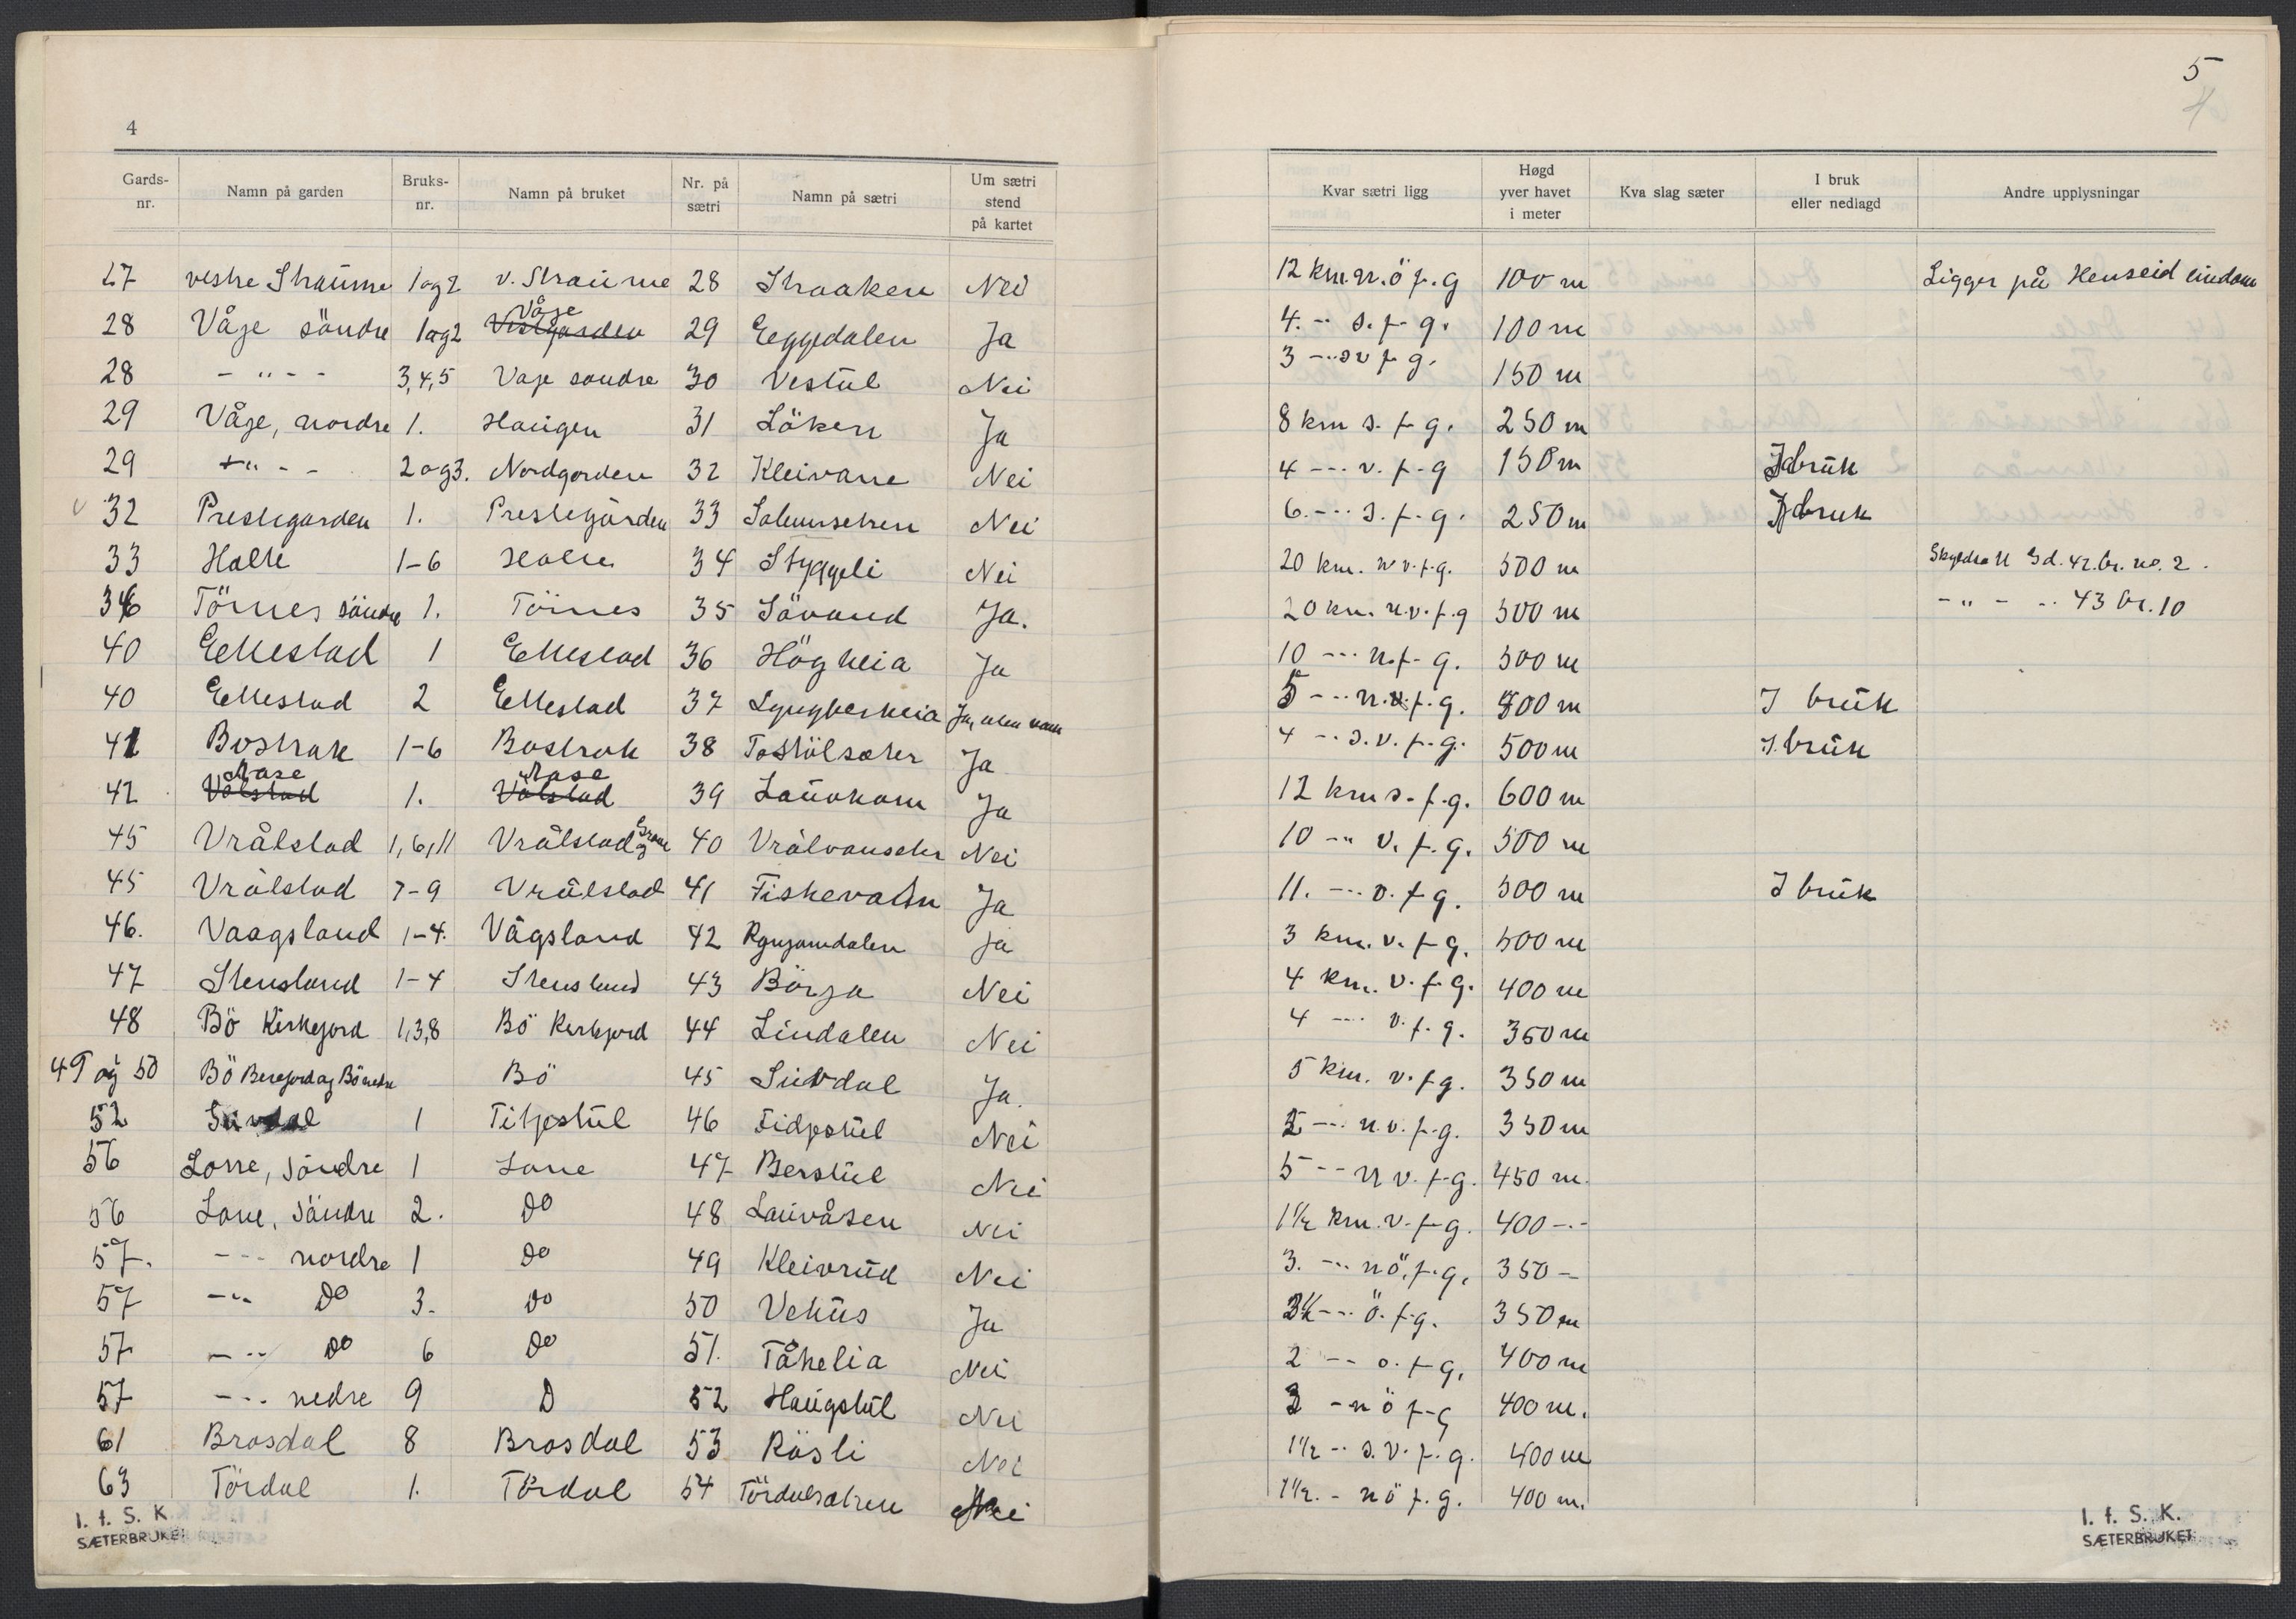 4
Gards-nr. Namn på garden Bruks-nr. Namn på bruket Nr. på sætri Namn på sætri Um sætri stend på kartet
27 vestre Straume 1 og 2 v. Straume 28 Straaken Nei
28 Våje söndre 1 og 2 Våje Vestgarden 29 Eggjedalen Ja
28 - " - - 3,4,5 Vaje sondre 30 Vestül Nei
29 Våje, nordre 1. Haügen 31 Löken Ja
29 - " - - 2 og 3. Nordgorden 32 Kleivane Nei
32 Prestegarden 1. Prestegården 33 Nei
33 Halte 1-6 Halte 34 Styggeli Nei
36 Törnes söndre 1. Törnes 35 Sövand Ja.
40 Eltestad 1 Eltestad 36 Högheia Ja
40 Eltestad 2 Eltestad 37 Lyngheiheia Ja, uten navn
41 Bostrak 1-6 Bostrak 38 Tostölsæter Ja
42 Aase Vålstad 1. Aase Vålstad 39 Ja
45 Vrålstad 1,6,11 Vrålstad 40 Vrålvanseter Nei
45 Vrålstad 7-9 Vrålstad 41 Fiskevatn Ja
46. Vaagsland 1-4. Vågsland 42 Ja
47 Stensland 1-4 Stensland 43 Börja Nei
48 Bö Kirkejord 1,3,8 Bö Kirkejord 44 Lindalen Nei
49 og 50 Bö Benejord og Bö nedre Bö 45 Süvdal Ja.
52 Süvdal 1 Titjestül 46 Tidjestül Nei
56 Lone, söndre 1 Lone 47 Berstül Nei
56 Lone, söndre 2. Do 48 Laüvåsen Nei
57. - - - nordre 1 Do 49 Kleivrüd Nei
57 - " - Do 3. Do 50 Vehüs Ja
57 - - - Do 6 Do 51. Tåkelia Nei
57 - - - nedre 9 D 52 Haügstül Nei
61 Brosdal 8 Brosdal 53 Rösli Nei
63 Tördal 1. Tördal 54 Tördalsætren Nei
I. f. S. K.
SÆTERBRUKET
5
4
Kvar sætri ligg Høgd yver havet i meter Kva slag sæter I bruk eller nedlagd Andre upplysningar
12 km. n.ö f.g 100 m Ligger på Henseid eiendom
4. - " s. f. g. 100 m
3 - " sv f. g. 150 m
8 km s. f. g. 250 m
4 - - - v. f. g 150 m I brük
6. - - - s. f. g. 250 m I bruk
20 km. n v. f. g. 500 m Skyldsatt Gd. 42. br. no. 2.
20 km. n.v. f. g 500 m - " - - 43 br. 10
10 - - - n. f. g. 500 m
5 - - - n. f. g. 700 m I brük
4 - - s. v. f. g. 500 m I brük
12 km s. f. g. 600 m
10 - " v. f. g. 500 m
11. - - - v. f. g. 500 m I brük
3 km. v. f. g. 500 m
4 km. v. f. g. 400 m
4 - - - v. f. g. 350 m
5 km. v. f. g. 350 m
2 - - - n. v. f. g. 350 m
5 - - n v. f. g. 450 m.
1 1/2 km. v. f. g. 400 - . -
3. - - - nö. f. g. 350 -
3 1/2 - - - ö. f. g. 350 m
2 - - ö. f. g. 400 m
3 - n ö f. g 400 m.
1 1/2 - - s. v. f. g. 400 m
1 1/2. - n ö f. g. 400 m.
I. f. S. K.
SÆTERBRUKET